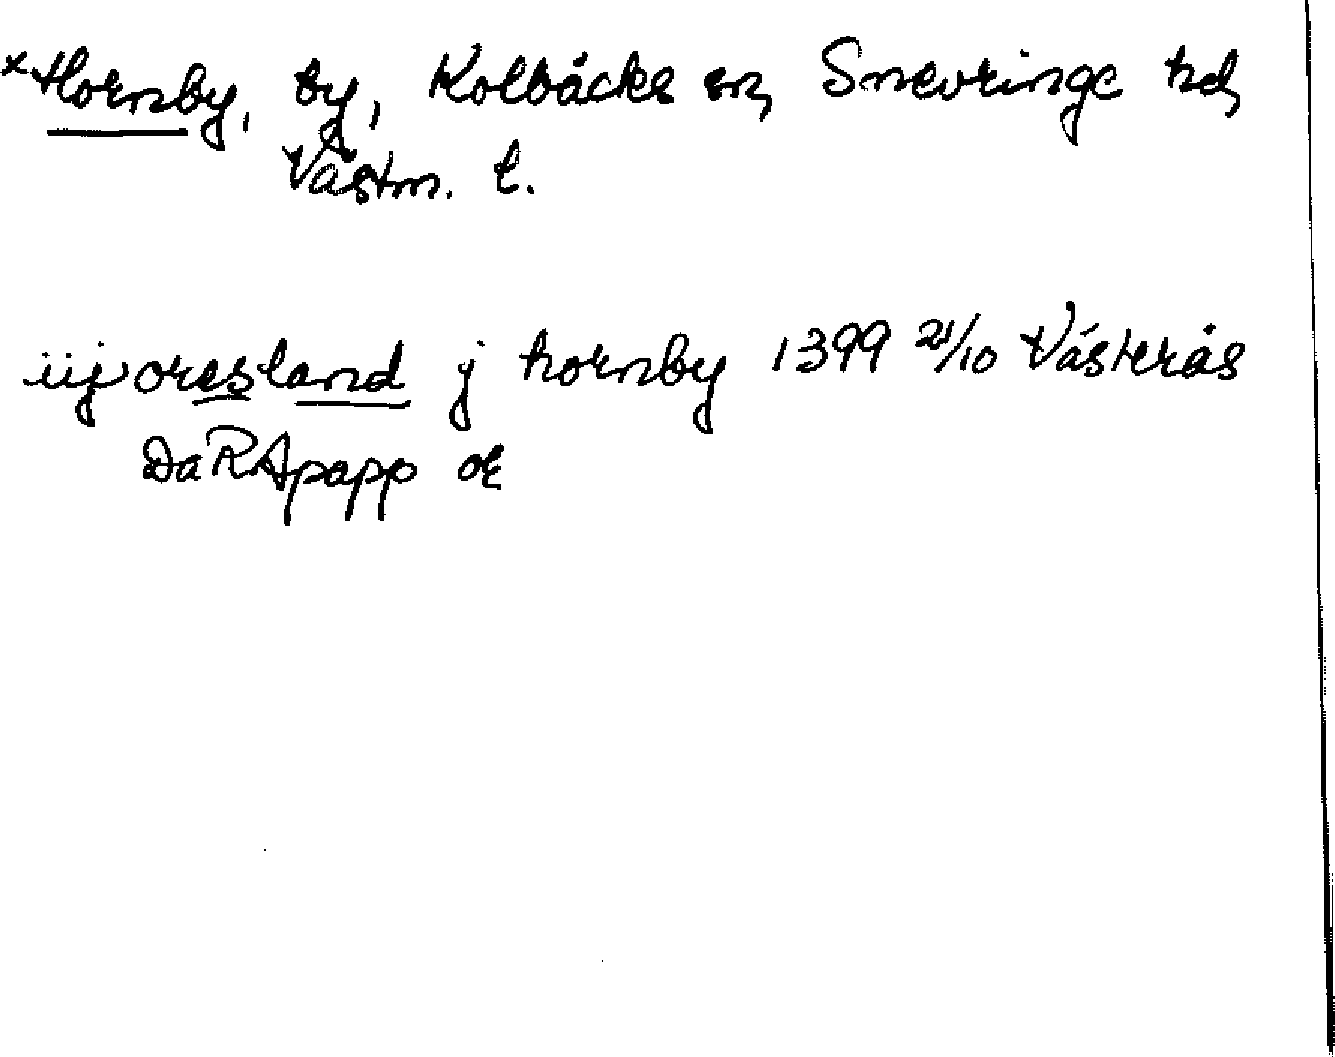 ×Hornby, by, Kolbäcks sn, Snevringe hd,
Västm. l.
iij oresland j hornby 1399 21/10 Västerås
DaRApapp or